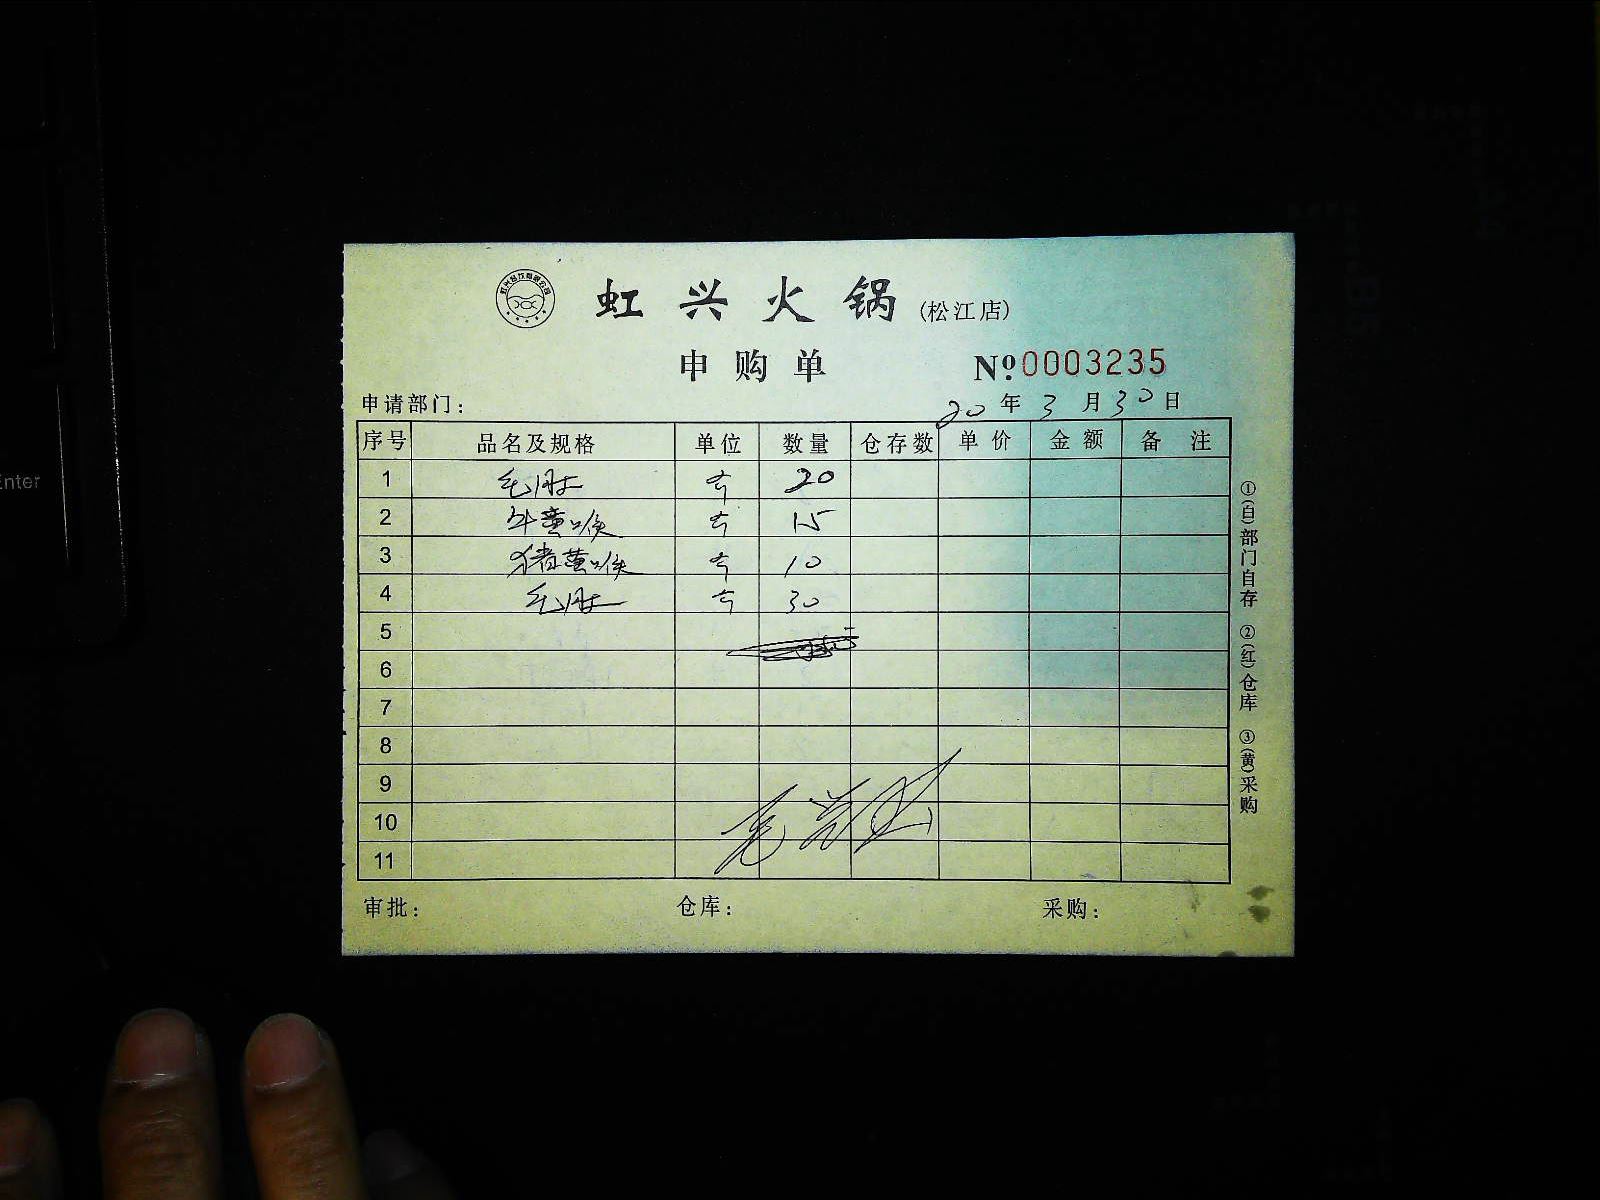 虹兴火锅(松江店)
申购单 Nº.0003235
申请部门: 20年3月30日
序号 品名及规格 单位 数量 仓存数 单价 金额 备注
1 毛肚 斤 20
2 牛黄喉 斤 15
3 猪黄喉 斤 10
4 毛肚 斤 30
5
6
7
8
9
10
11
审批: 仓库: 采购:
①(白)部门自存 ②(红)仓库 ③(黄)采购
Enter